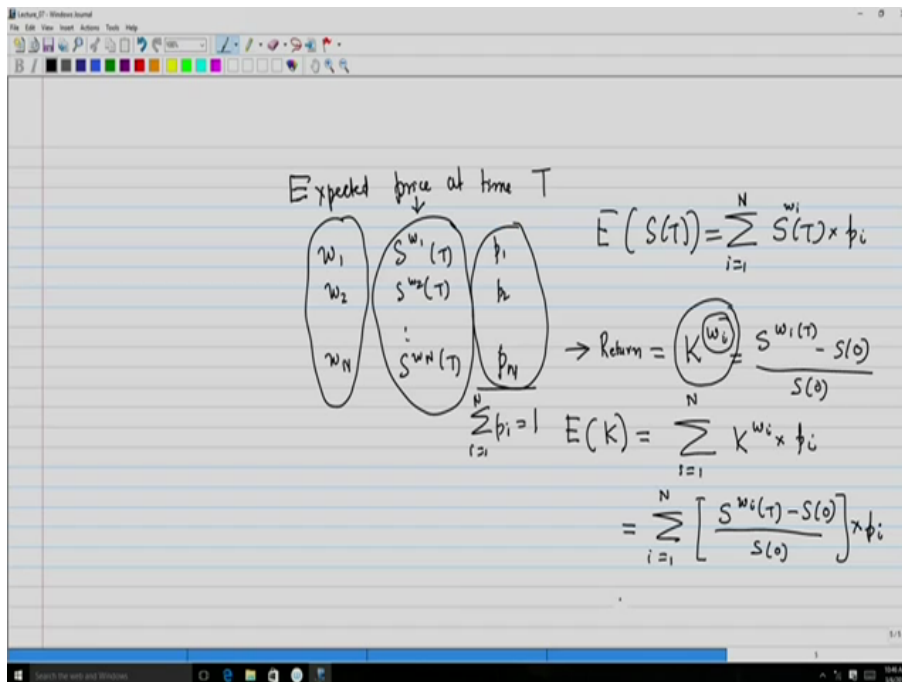 Lecture_07 - Windows Journal
File Edit View Insert Actions Tools Help
100%
B I
Expected price at time T
w₁ S^{w₁}(T) p₁
w₂ S^{w₂}(T) p₂
⋮
w_N S^{w_N}(T) p_N
\sum_{i=1}^{N} p_i = 1
E(S(T)) = \sum_{i=1}^{N} S^{w_i}(T) × p_i
→ Return = K^{w_i} = \frac{S^{w_i(T)} - S(0)}{S(0)}
E(K) = \sum_{i=1}^{N} K^{w_i} × p_i
= \sum_{i=1}^{N} [\frac{S^{w_i}(T) - S(0)}{S(0)}] × p_i
5/5
5
Search the web and Windows